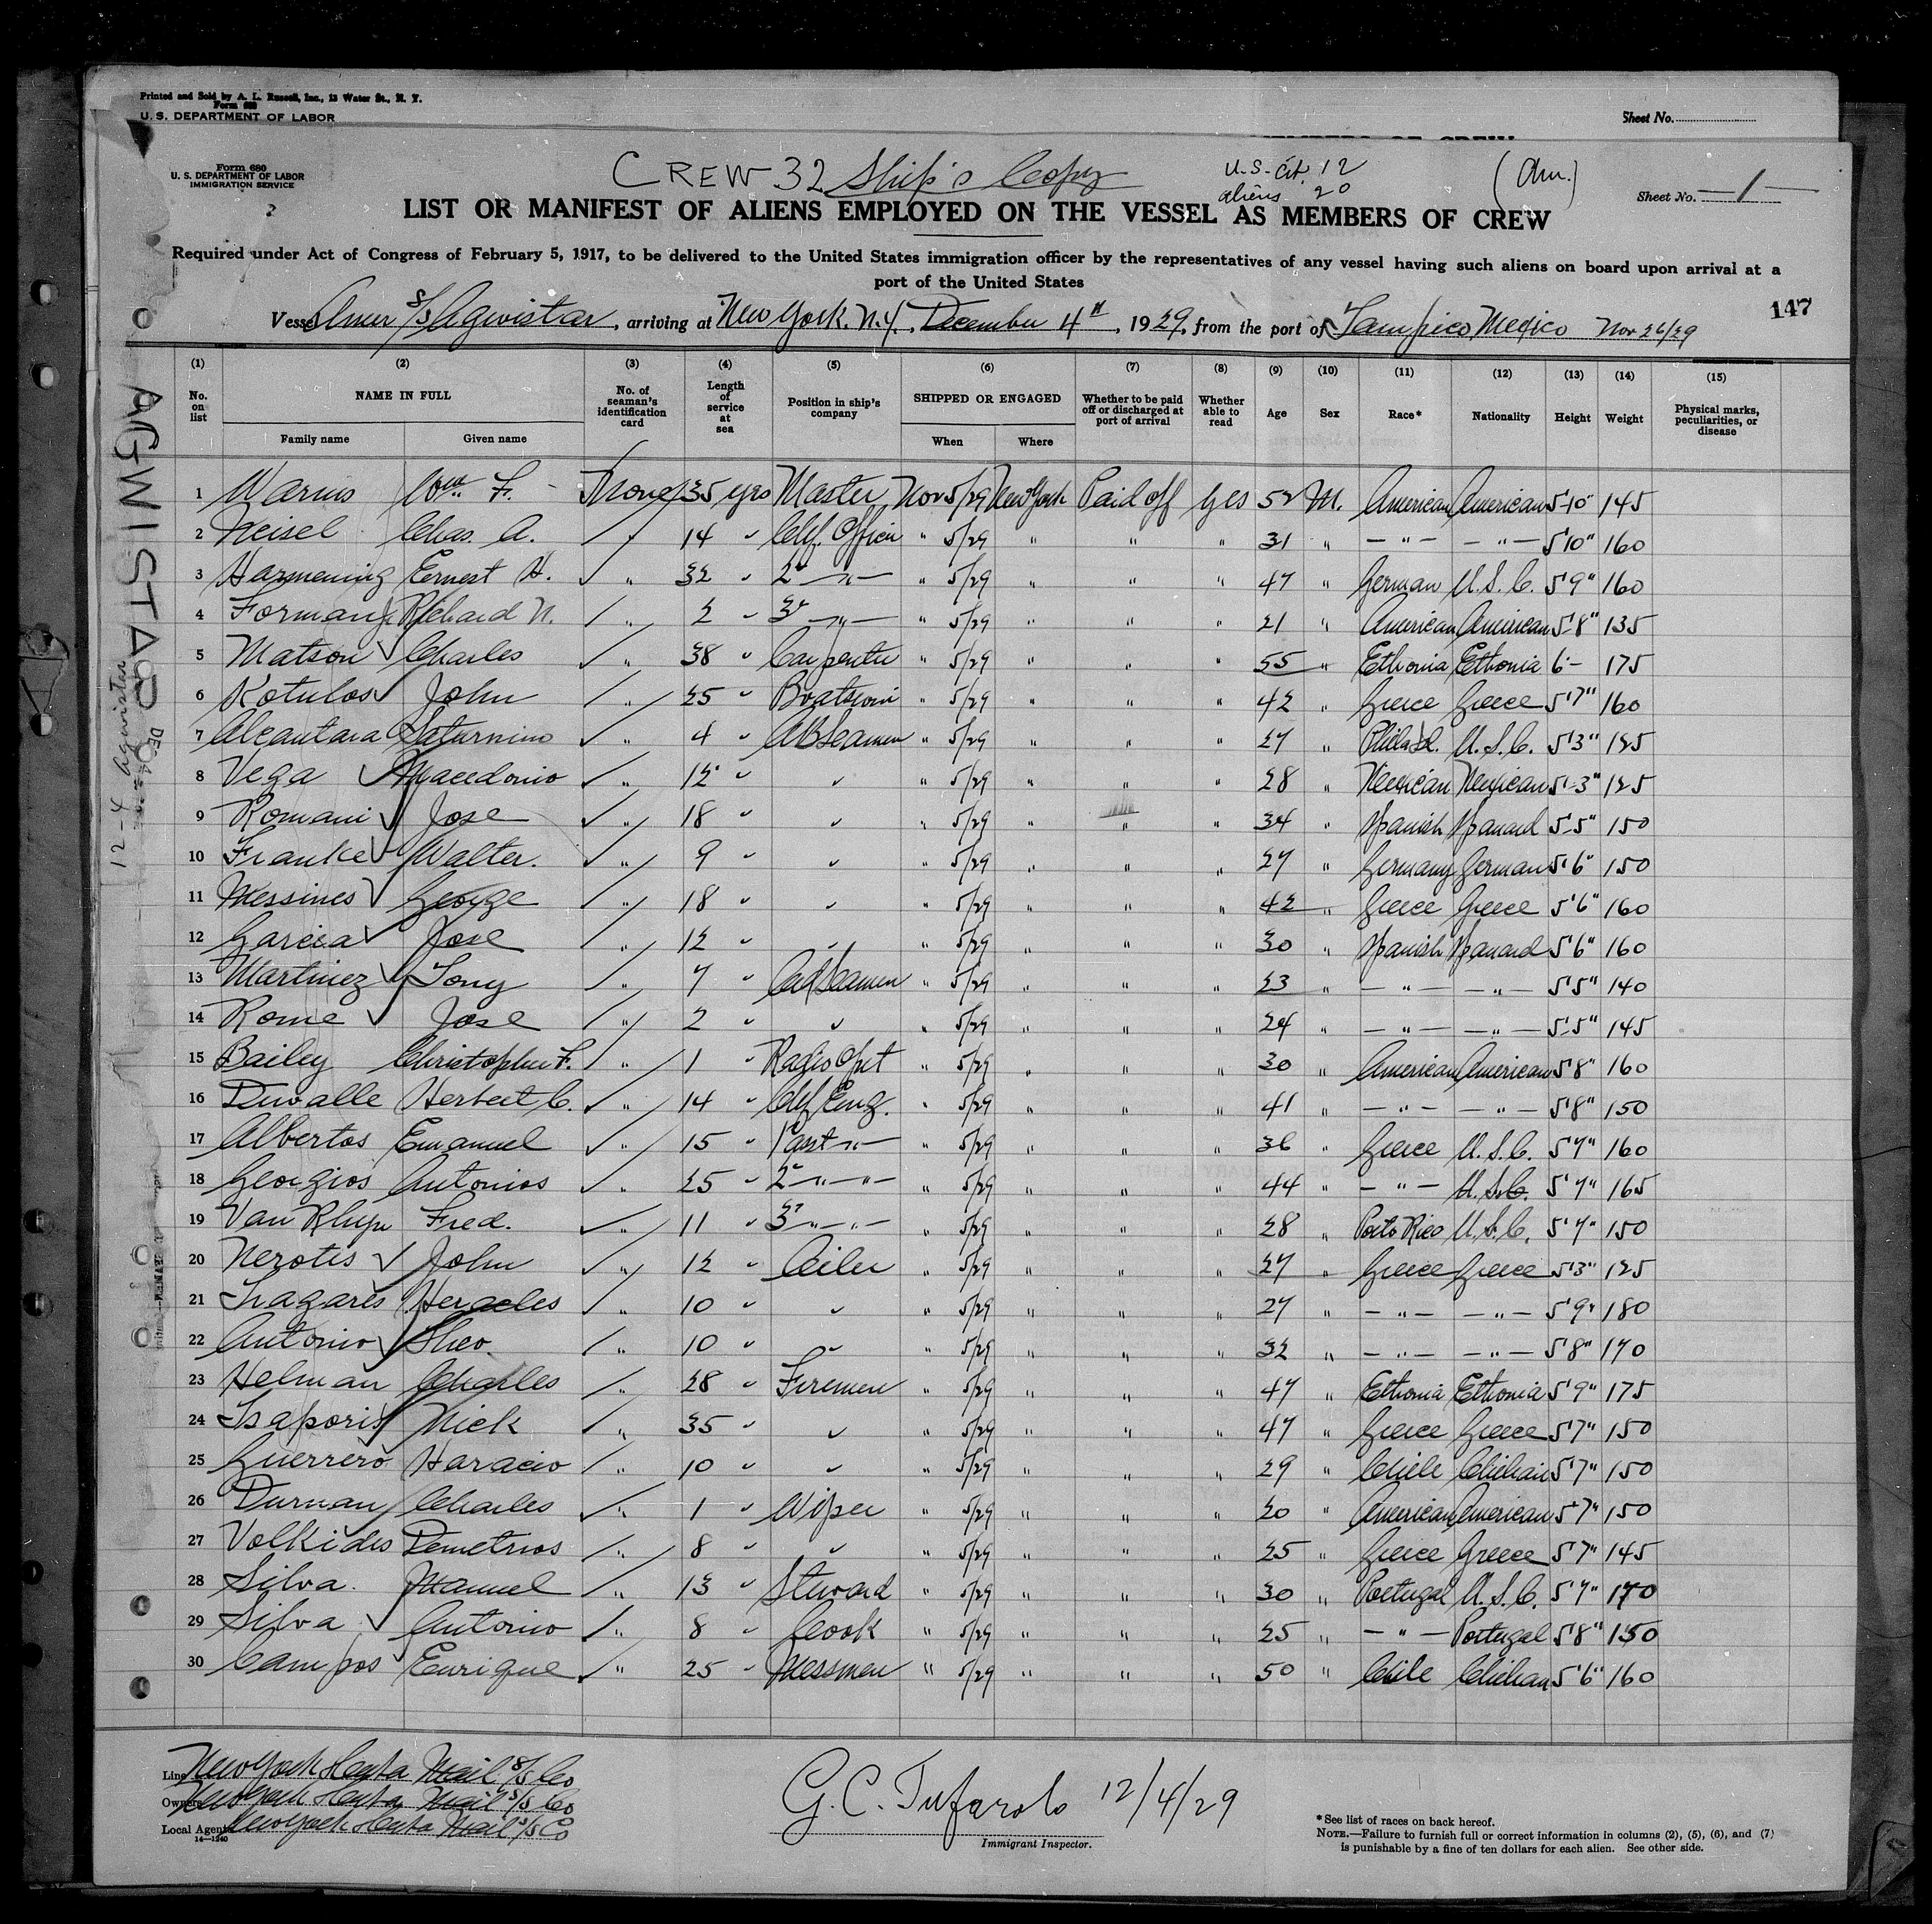 Printed and Sold by A. L. Russell, Inc., 13 Water St., N. Y.
Form 680
U. S. DEPARTMENT OF LABOR
Sheet No.
Form 680
U. S. DEPARTMENT OF LABOR
IMMIGRATION SERVICE
CREW 32 Ship's Copy
U.S. cit. 12
aliens 20
(Am.)
Sheet No. 1
LIST OR MANIFEST OF ALIENS EMPLOYED ON THE VESSEL AS MEMBERS OF CREW
Required under Act of Congress of February 5, 1917, to be delivered to the United States immigration officer by the representatives of any vessel having such aliens on board upon arrival at a
port of the United States
Vessel Amer S/S Agwistar, arriving at New York. N.Y., December 4th, 1929, from the port of Tampico Mexico Nov 26/29
147
AGWISTAR
12-4 Agwistar
DE 04
(1) (2) (3) (4) (5) (6) (7) (8) (9) (10) (11) (12) (13) (14) (15)
No. on list NAME IN FULL No. of seaman's identification card Length of service at sea Position in ship's company SHIPPED OR ENGAGED Whether to be paid off or discharged at port of arrival Whether able to read Age Sex Race* Nationality Height Weight Physical marks, peculiarities, or disease
Family name Given name When Where
1 Warms Wm. F. - None 35 yrs Master Nov 5/29 New York Paid off yes 52 M. American American 5'10" 145
2 Neisel Chas. A. " 14 " Chf. Officer " 5/29 " " " 31 " " " 5'10" 160
3 Harmening Ernest H. " 32 " 2d " " 5/29 " " " 47 " German U.S.C. 5'9" 160
4 Forman Richard N. " 2 " 3d " " 5/29 " " " 21 " American American 5'8" 135
5 Matson Charles " 38 " Carpenter " 5/29 " " " 55 " Ethonia Ethonia 6'- 175
6 Kotulos John " 25 " Boatswain " 5/29 " " " 42 " Greece Greece 5'7" 160
7 Alcantara Saturnino " 4 " AB Seamen " 5/29 " " " 27 " U.S.C. 5'3" 125
8 Vega Macedonio " 12 " " " 5/29 " " " 28 " Mexican Mexican 5'-3" 125
9 Romani Jose " 18 " " " 5/29 " " " 34 " Spanish Spanard 5'5" 150
10 Franke Walter. " 9 " " " 5/29 " " " 27 " Germany German 5'6" 150
11 Messines George " 18 " " " 5/29 " " " 42 " Greece Greece 5'6" 160
12 Garcia Jose " 12 " " " 5/29 " " " 30 " Spanish Spanard 5'6" 160
13 Martinez Tony " 7 " Ord Seamen " 5/29 " " " 23 " " " 5'5" 140
14 Rome Jose " 2 " " " 5/29 " " " 24 " " " 5'5" 145
15 Bailey Christopher F. " 1 " Radio Opt " 5/29 " " " 30 " American American 5'8" 160
16 Duvalle Herbert C. " 14 " Chf Eng. " 5/29 " " " 41 " " " 5'8" 150
17 Albertos Emanuel " 15 " 1 asst " " 5/29 " " " 36 " Greece U.S.C. 5'7" 160
18 Georgios Antonios " 25 " 2d " " " 5/29 " " " 44 " " U.S.C. 5'7" 165
19 Van Rhyn Fred. " 11 " 3d " " " 5/29 " " " 28 " Porto Rico U.S.C. 5'7" 150
20 Nerotis John " 12 " Oiler " 5/29 " " " 27 " Greece Greece 5'3" 125
21 Lagares Heracles " 10 " " " 5/29 " " " 27 " " " 5'9" 180
22 Antonio Theo. " 10 " " " 5/29 " " " 32 " " " 5'8" 170
23 Helman Charles " 28 " Firemen " 5/29 " " " 47 " Ethonia Ethonia 5'9" 175
24 Tsaporis Nick " 35 " " " 5/29 " " " 47 " Greece Greece 5'7" 150
25 Guerrero Haracio " 10 " " " 5/29 " " " 29 " Chile Chilian 5'7" 150
26 Durnan Charles " 1 " Wiper " 5/29 " " " 20 " American American 5'7" 150
27 Volkides Demetrios " 8 " " " 5/29 " " " 25 " Greece Greece 5'7" 145
28 Silva. Manuel " 13 " Steward " 5/29 " " " 30 " Portugal U.S.C. 5'7" 170
29 Silva Antonio " 8 " Cook " 5/29 " " " 25 " " Portugal 5'8" 150
30 Campos Enrique " 25 " Messmen " 5/29 " " " 50 " Chile Chilian 5'6" 160
Line New York & Cuba Mail S/S Co
Owners New York & Cuba Mail S/S Co
Local Agents New York & Cuba Mail S/S Co
14—1240
G. C. Tufarolo 12/4/29
Immigrant Inspector.
*See list of races on back hereof.
NOTE.—Failure to furnish full or correct information in columns (2), (5), (6), and (7)
is punishable by a fine of ten dollars for each alien. See other side.